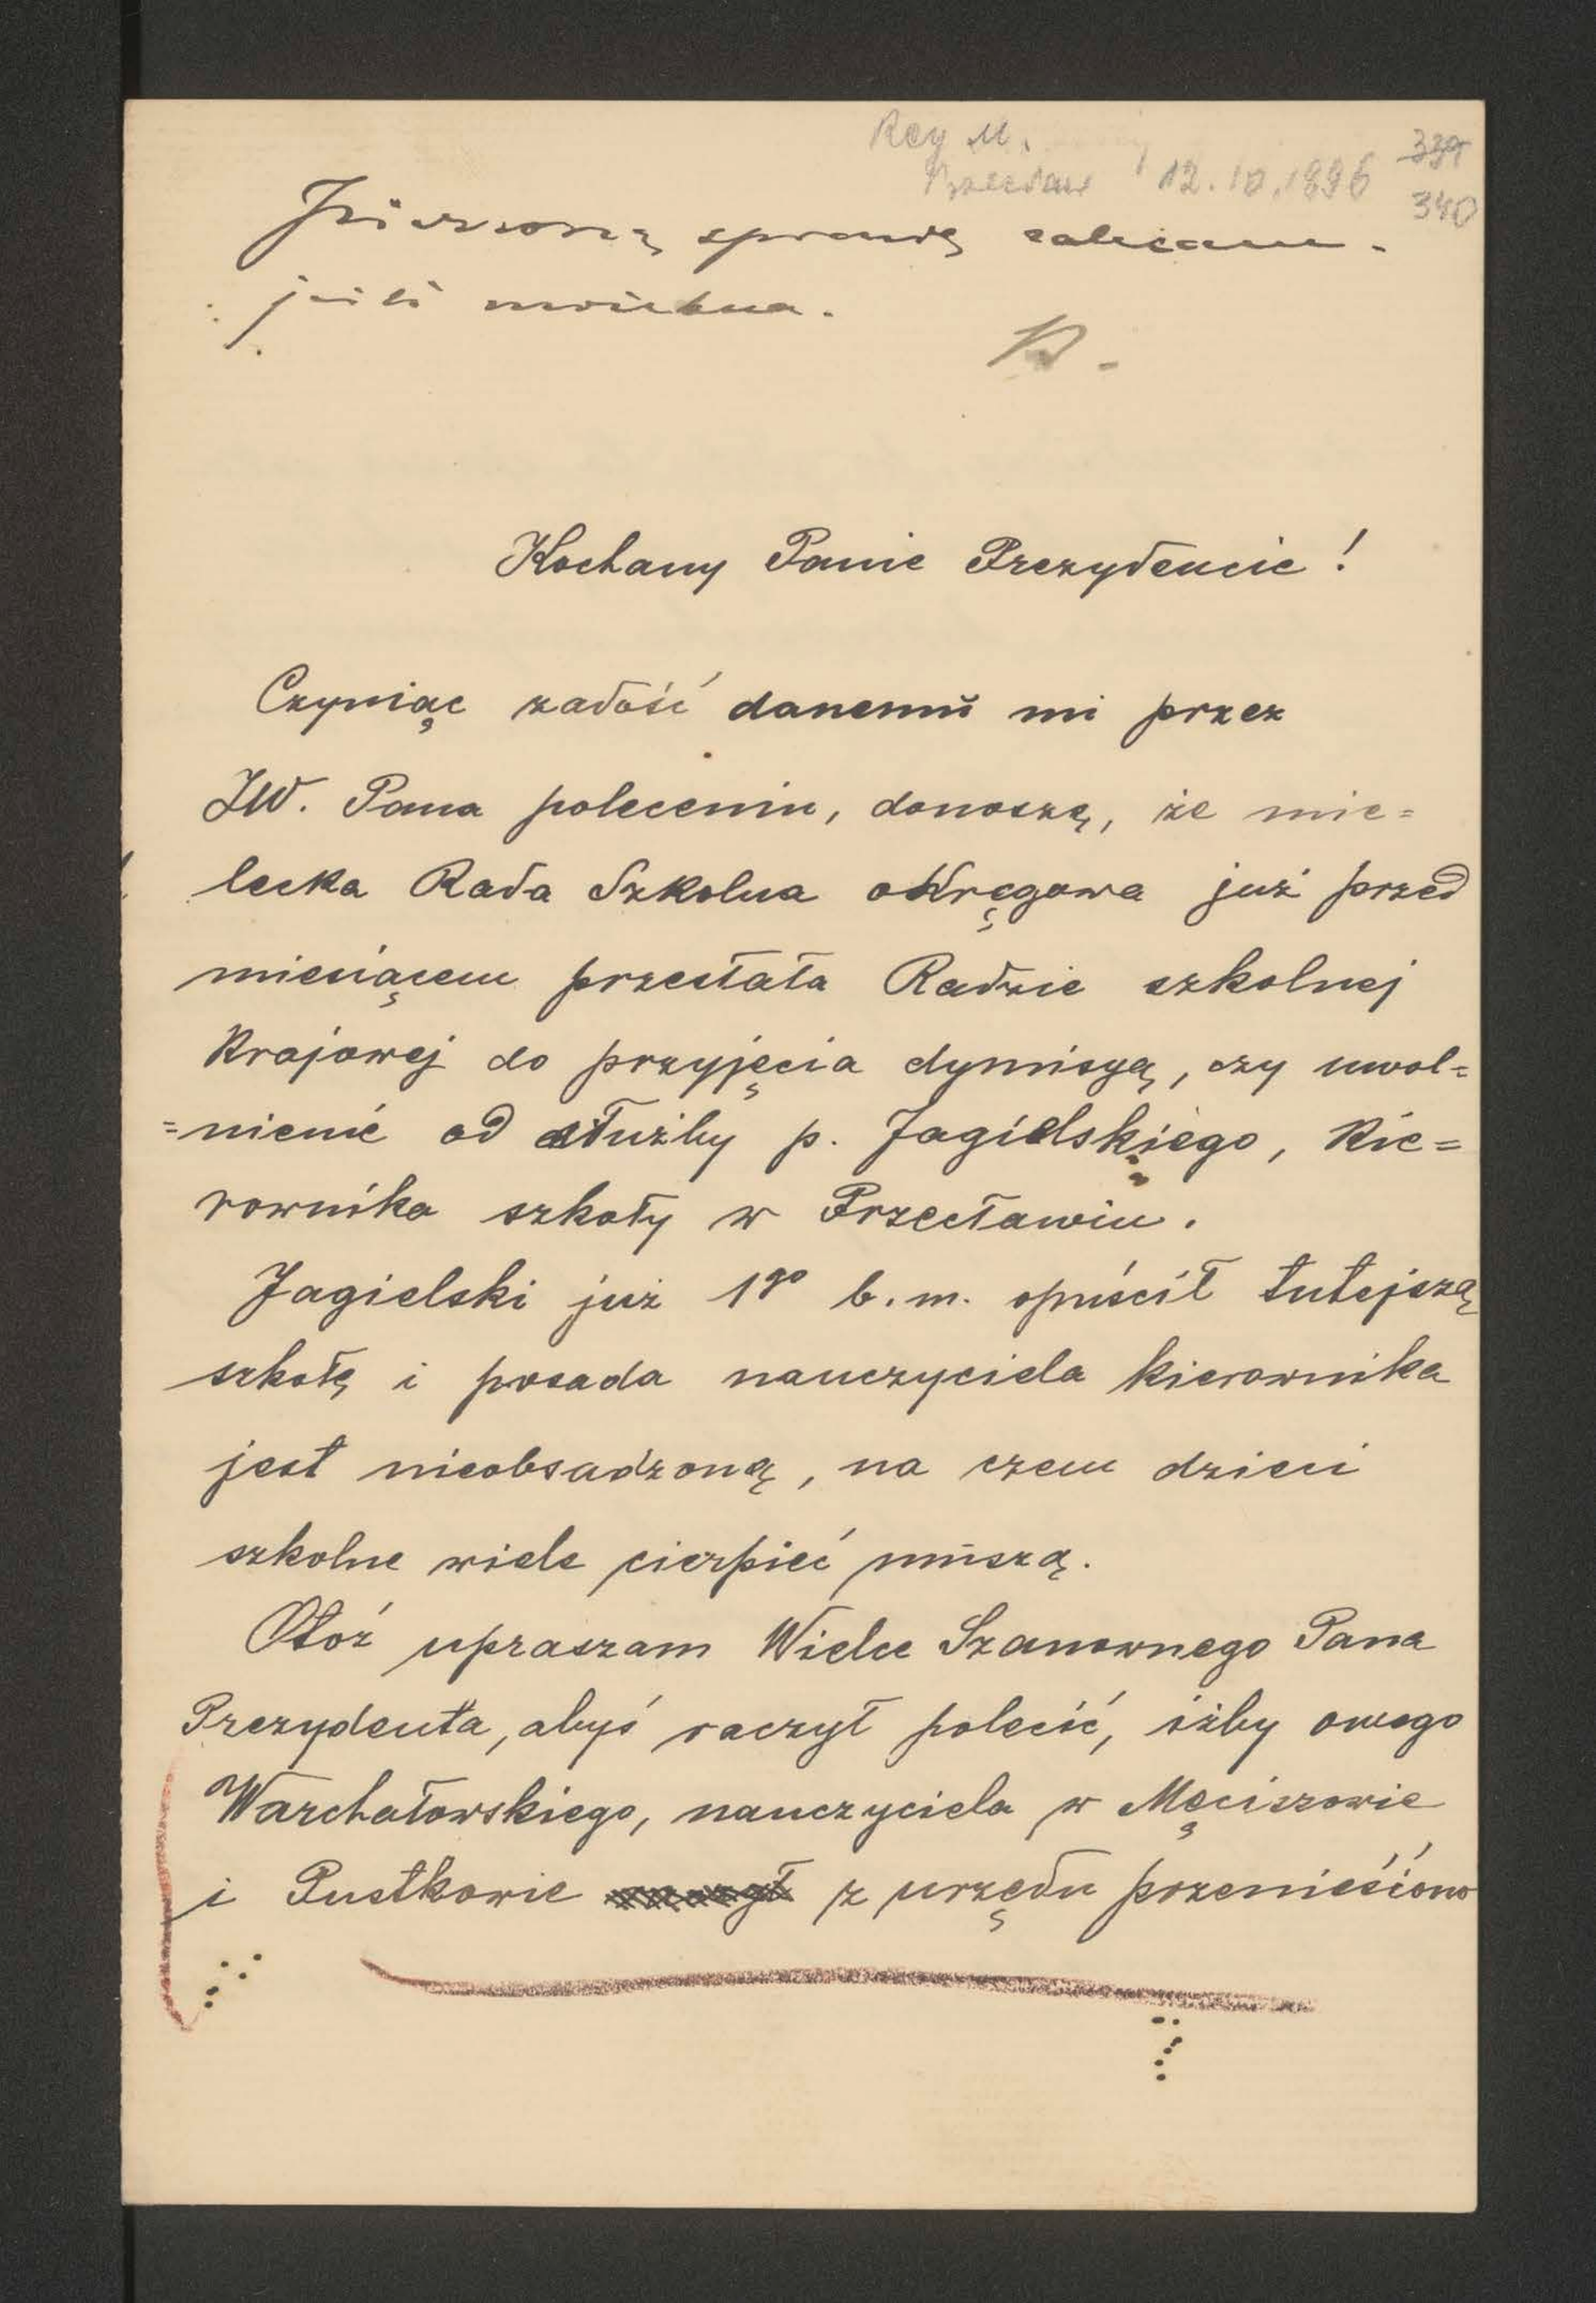 Rey M.
Przecław 12.10.1896
339
340
sprawę zalecam.
jeśli można.
Kochany Panie Prezydencie!
Czyniąc zadość danemu mi przez
JW. Pana poleceniu, donoszę, że mie=
lecka Rada Szkolna okręgowa już przed
miesiącem przesłała Radzie szkolnej
Krajowej do przyjęcia dymisyą, czy uwol=
=nienie od służby p. Jagielskiego, Kie=
rownika szkoły w Przecławiu.
Jagielski już 1go b.m. opuścił tutejszą
szkołę i posada nauczyciela kierownika
jest nieobsadzoną, na czem dzieci
szkolne wiele cierpieć muszą.
Otóż upraszam Wielce Szanownego Pana
Prezydenta, abyś raczył polecić, iżby owego
Warchałowskiego, nauczyciela w Męciszowie
i Pustkowie z urzędu przenieśiono